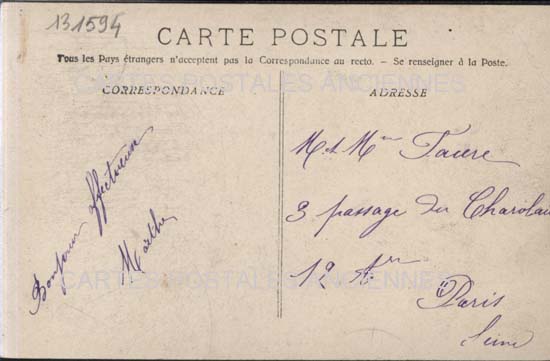 131594
CARTE POSTALE
Tous les Pays étrangers n'acceptent pas la Correspondance au recto. - Se renseigner à la Poste.
CARTES POSTALES ANCIENNES
CORRESPONDANCE
ADRESSE
Bonjour affectueux
Marthe
M. et Mme Faure
3 passage du Charolais
12 Arr
Paris
Seine
CARTES POSTALES ANCIENNES